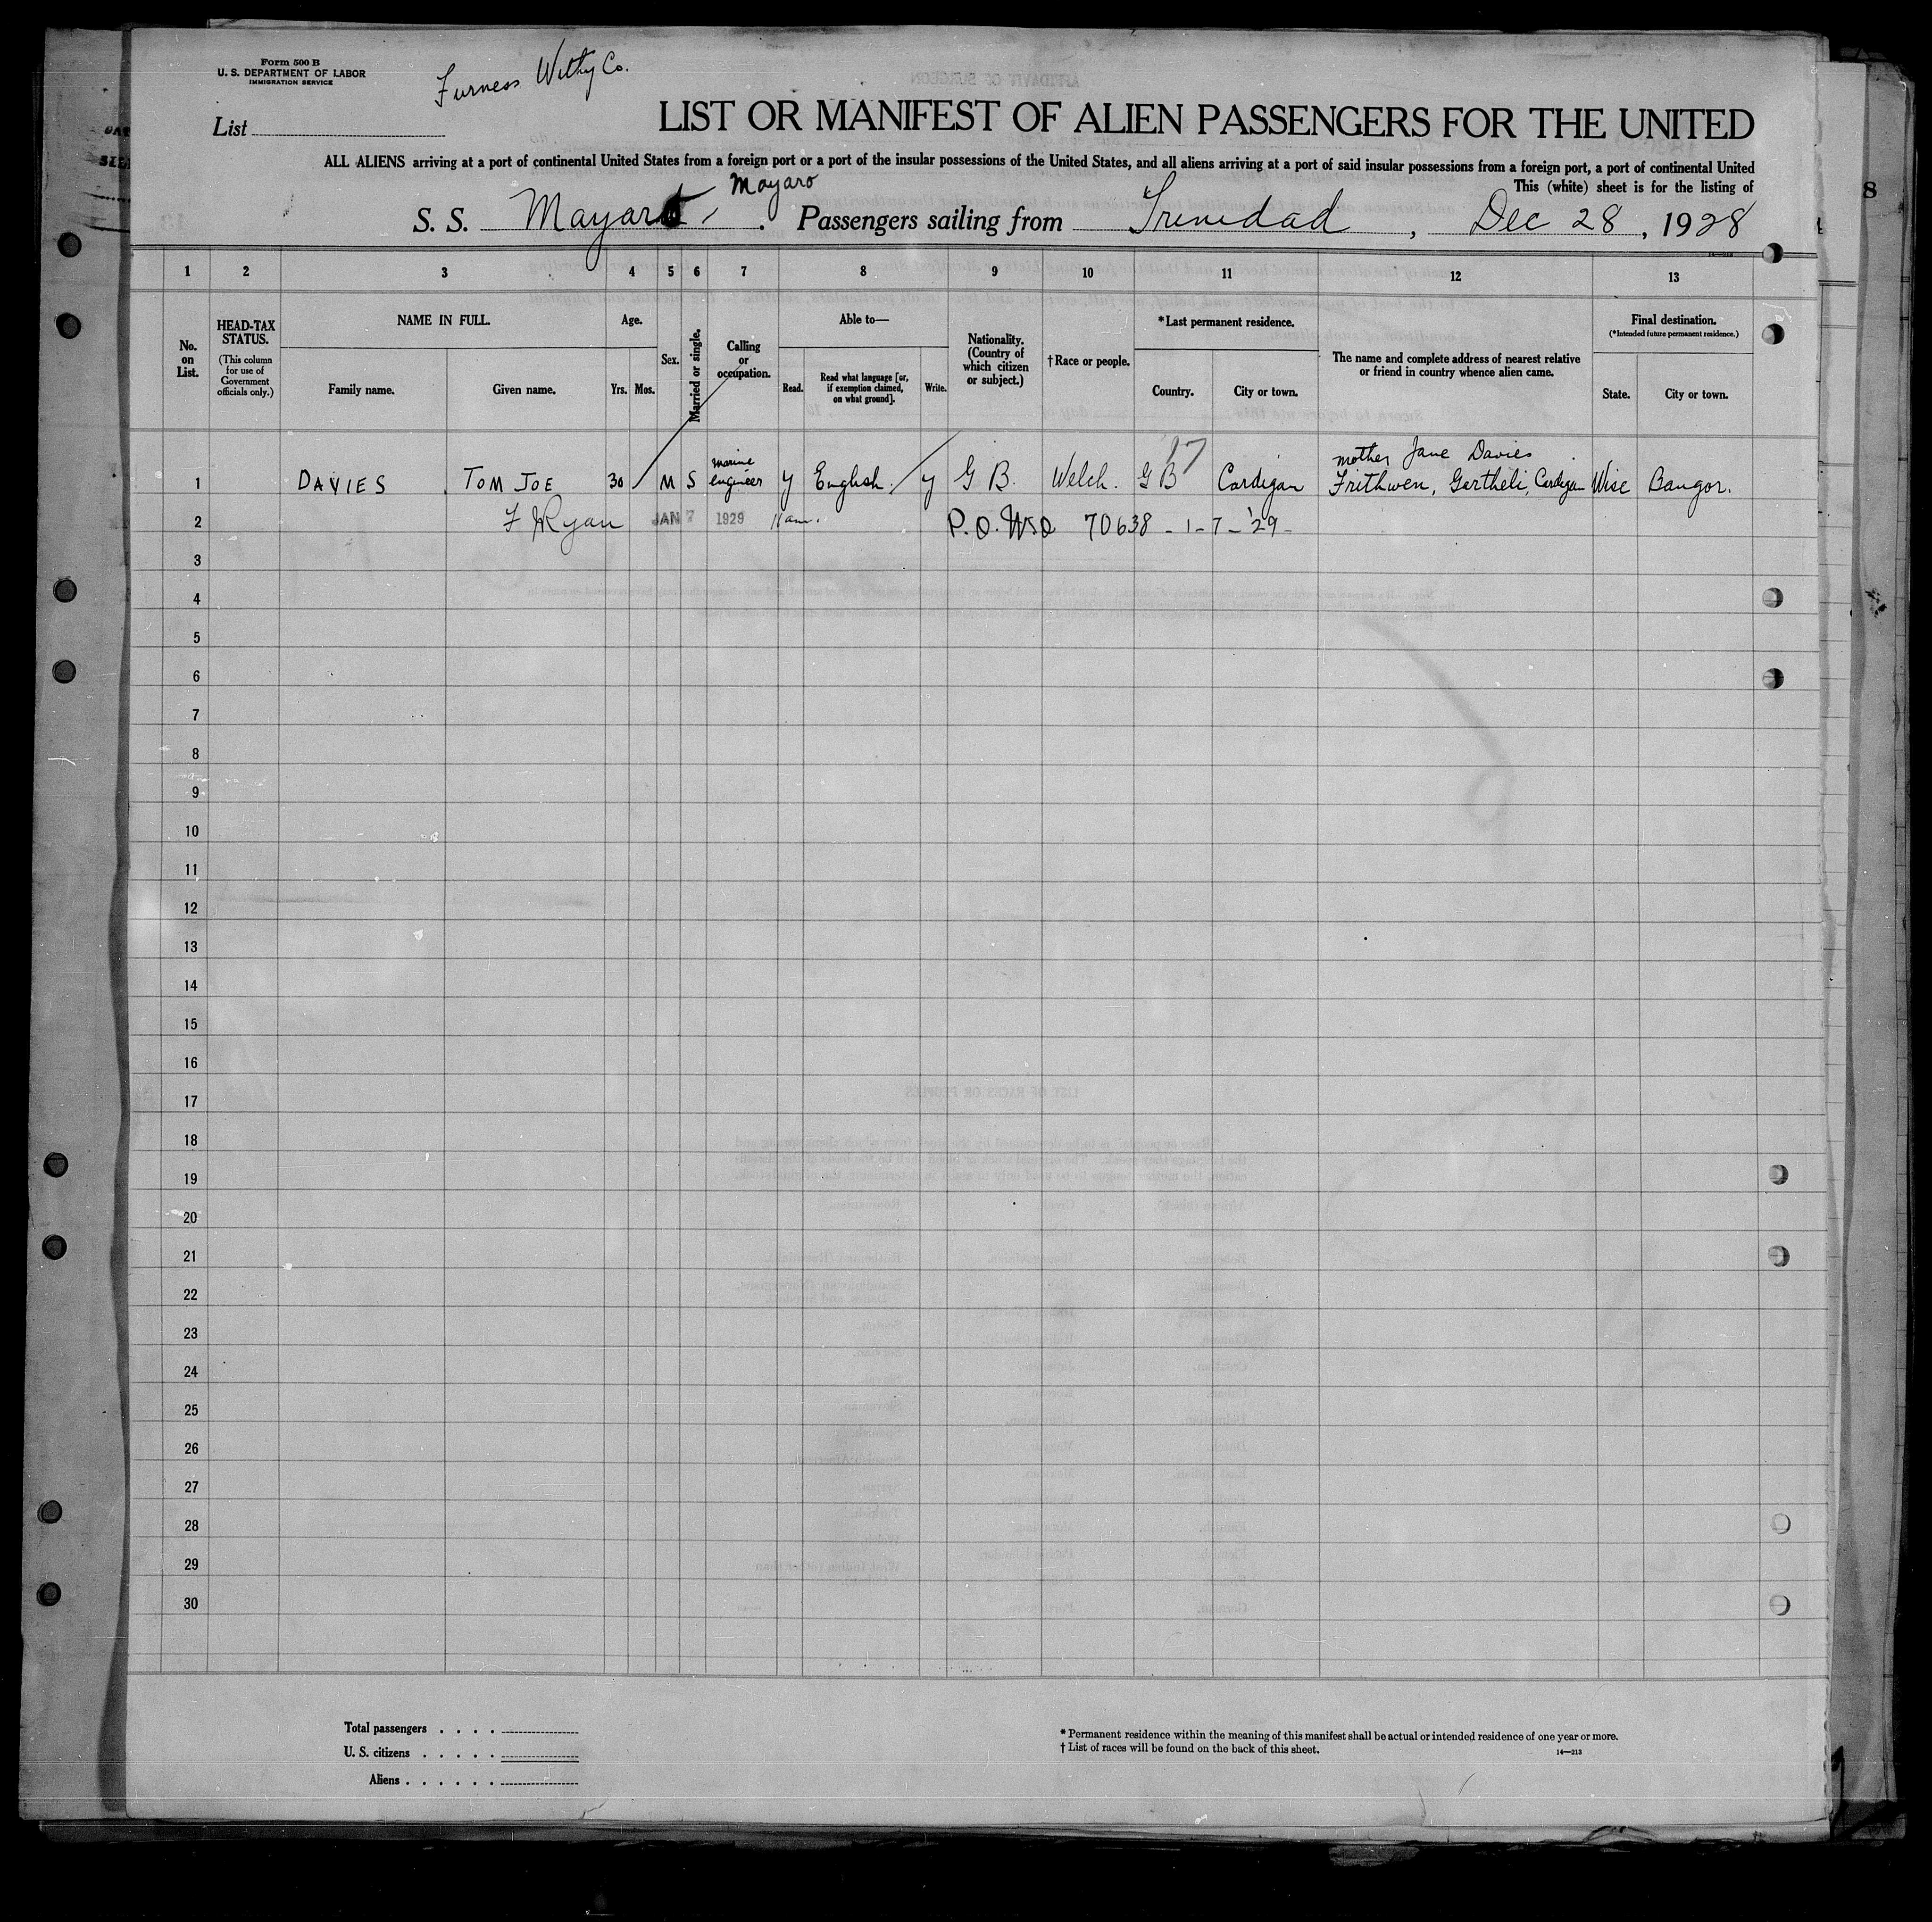 Form 500 B
U. S. DEPARTMENT OF LABOR
IMMIGRATION SERVICE
Furness Withy Co.
List
LIST OR MANIFEST OF ALIEN PASSENGERS FOR THE UNITED
ALL ALIENS arriving at a port of continental United States from a foreign port or a port of the insular possessions of the United States, and all aliens arriving at a port of said insular possessions from a foreign port, a port of continental United
This (white) sheet is for the listing of
Mayaro
S. S. Mayaro. Passengers sailing from Trinidad, Dec 28, 1928
1 2 3 4 5 6 7 8 9 10 11 12 13
No. on List.
HEAD-TAX STATUS.
(This column for use of Government officials only.)
NAME IN FULL.
Family name.
Given name.
Age.
Yrs. Mos.
Sex.
Married or single.
Calling or occupation.
Able to—
Read.
Read what language [or, if exemption claimed, on what ground].
Write.
Nationality. (Country of which citizen or subject.)
†Race or people.
*Last permanent residence.
Country.
City or town.
The name and complete address of nearest relative or friend in country whence alien came.
Final destination.
(*Intended future permanent residence.)
State.
City or town.
17
1 DAVIES TOM JOE 30 M S marine engineer y English y G B. Welch. G B Cardigan mother Jane Davies Frithwen, Gertheli, Cardigan Wisc Bangor.
2 F J Ryan JAN 7 1929 11 am. 70638 - 1 - 7 - '29 -
3
4
5
6
7
8
9
10
11
12
13
14
15
16
17
18
19
20
21
22
23
24
25
26
27
28
29
30
Total passengers . . . .
U. S. citizens . . . . .
Aliens . . . . . .
* Permanent residence within the meaning of this manifest shall be actual or intended residence of one year or more.
† List of races will be found on the back of this sheet.
14—213
8